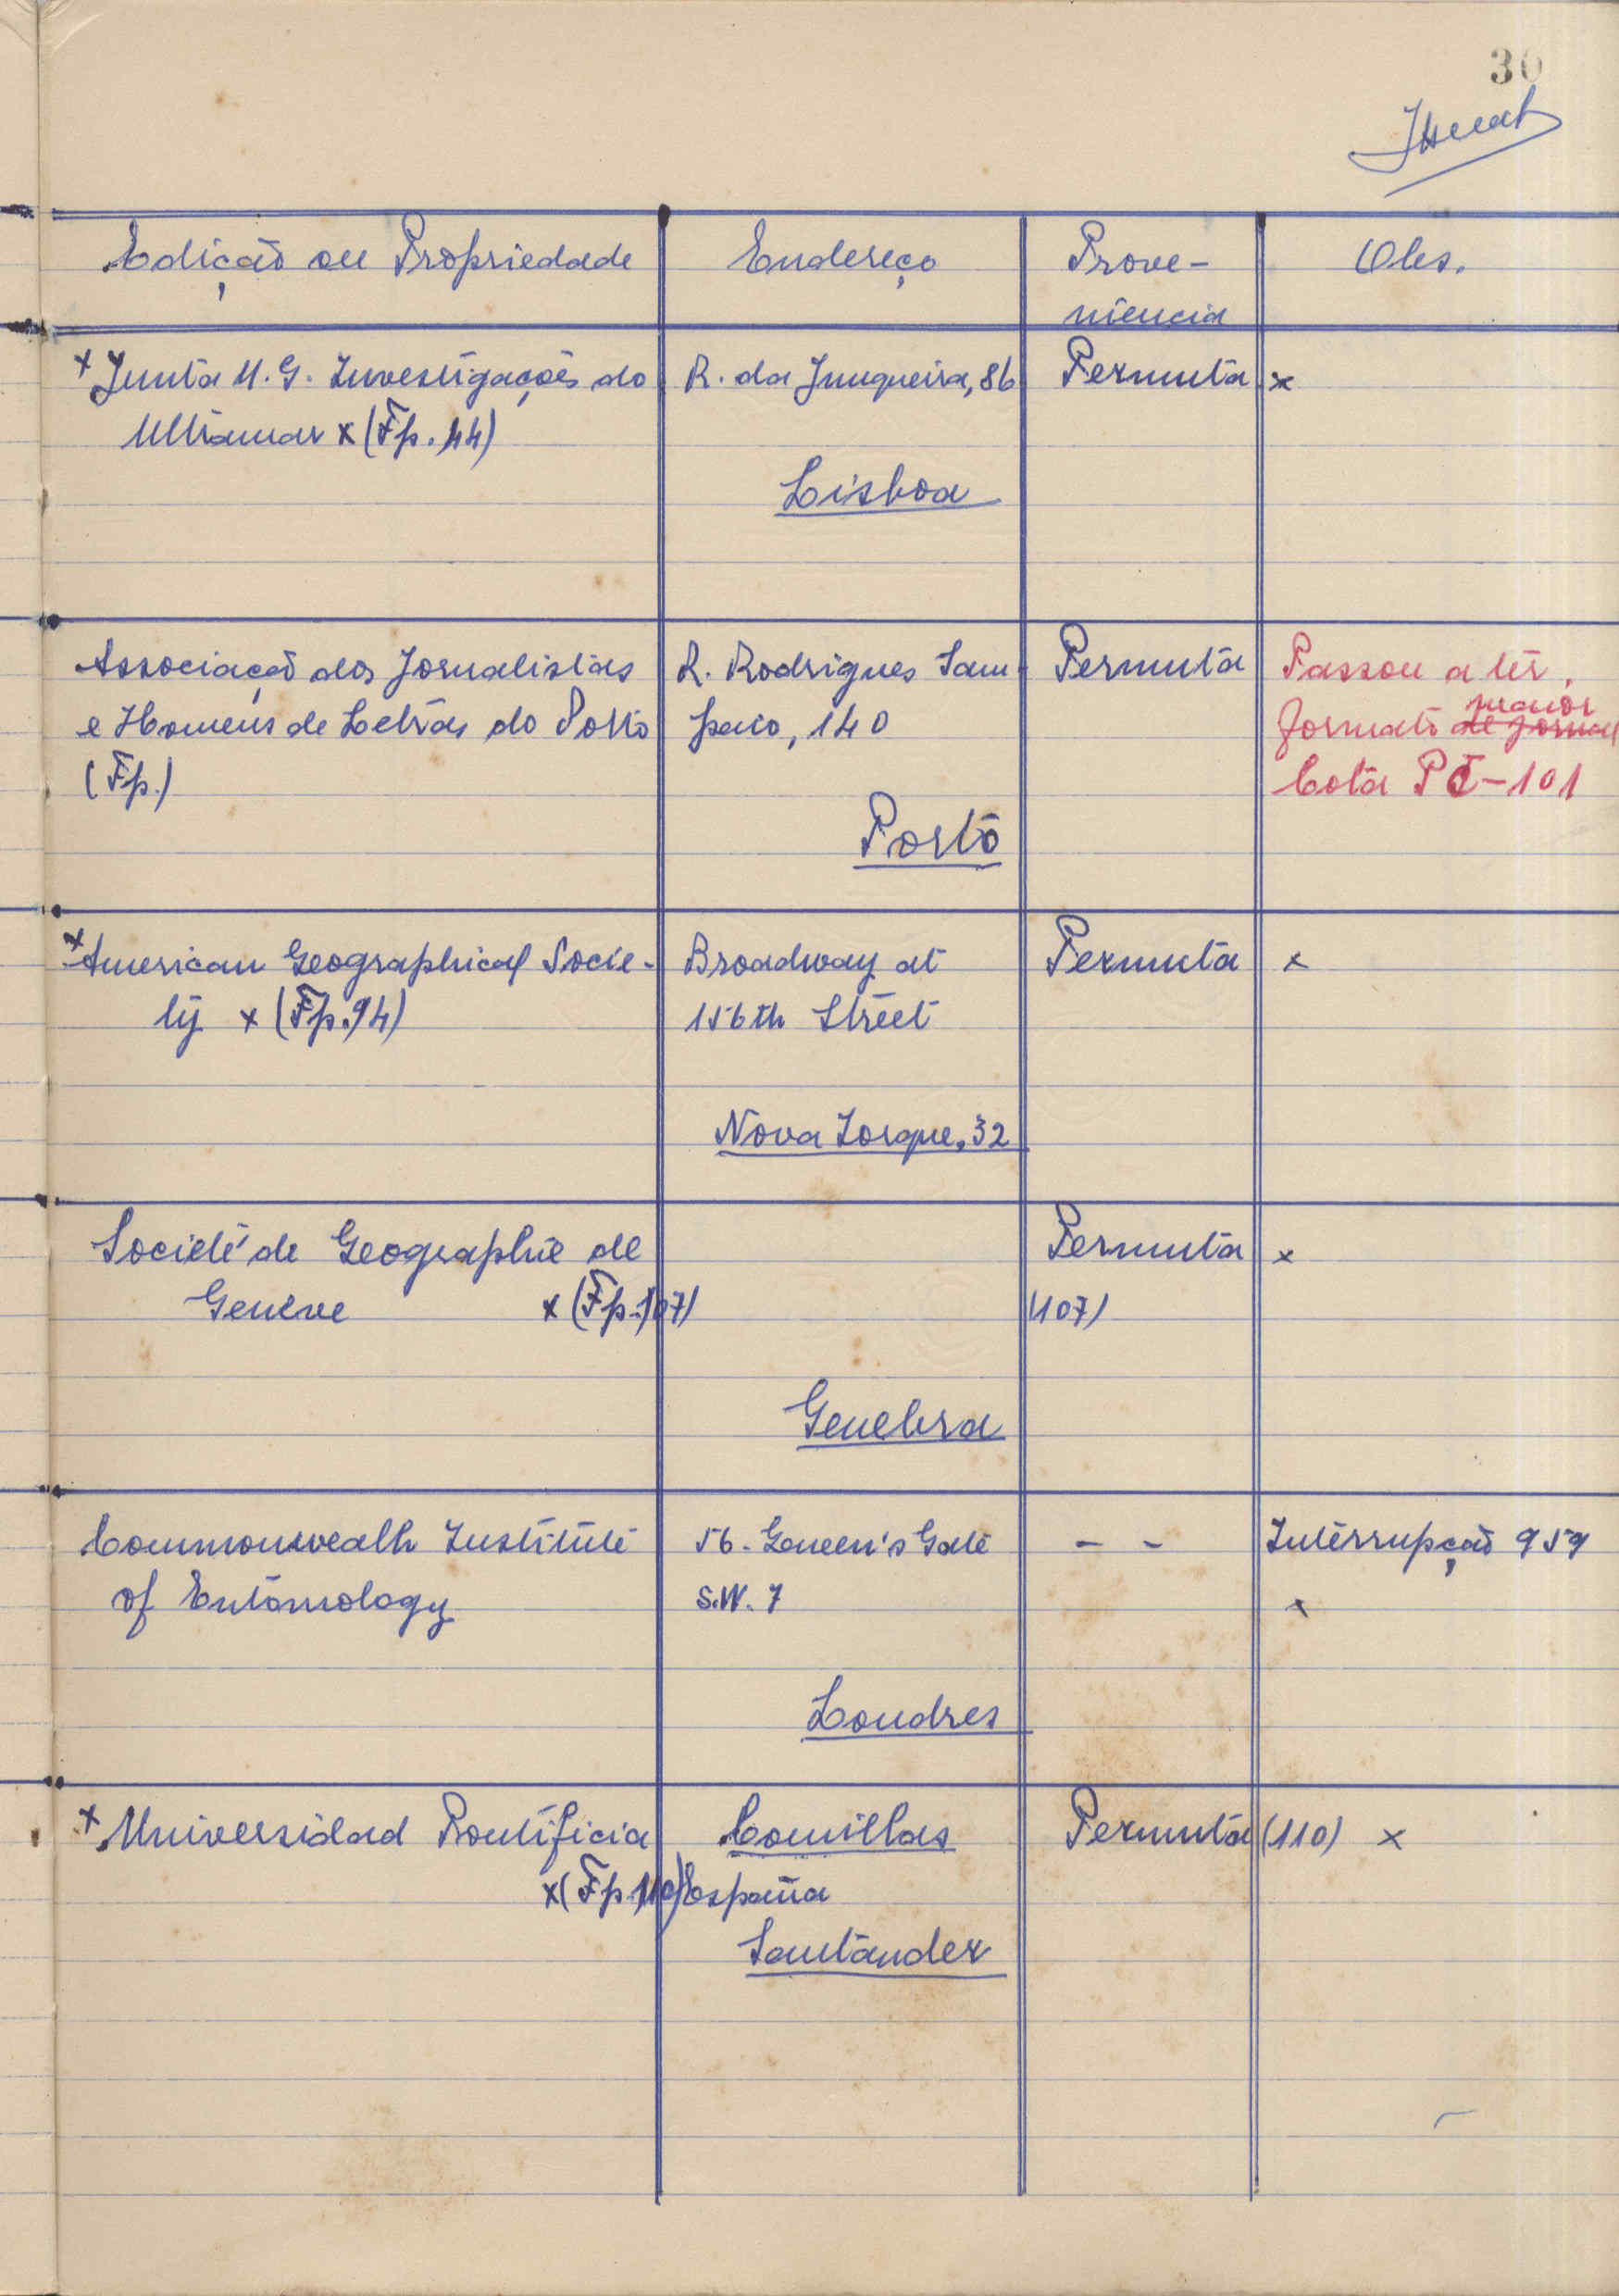 30
Edição ou Propriedade
Endereço
Prove-
niencia
Obs.
x Junta M. G. Investigações do
Ultramar x (Fp. 44)
R. da Junqueira, 86
Lisboa
Permuta
x
Associação dos Jornalistas
e Homens de Letras do Porto
(Fp.)
R. Rodrigues Sam
paio, 140
Porto
Permuta
Passou a ter
maior
formato de jornal
Cota PC-101
x American Geographical Socie-
ty x (Fp. 94)
Broadway at
156th Street
Nova Iorque, 32
Permuta
x
Societé de Geographie de
Genève x (Fp. 107)
Genebra
Permuta
(107)
x
Commonwealth Institute
of Entomology
56. Queen's Gate
S.W. 7
Londres
- -
Interrupção 959
x
x Universidad Pontificia
x (Fp. 110)
Comillas
España
Santander
Permuta (110) x